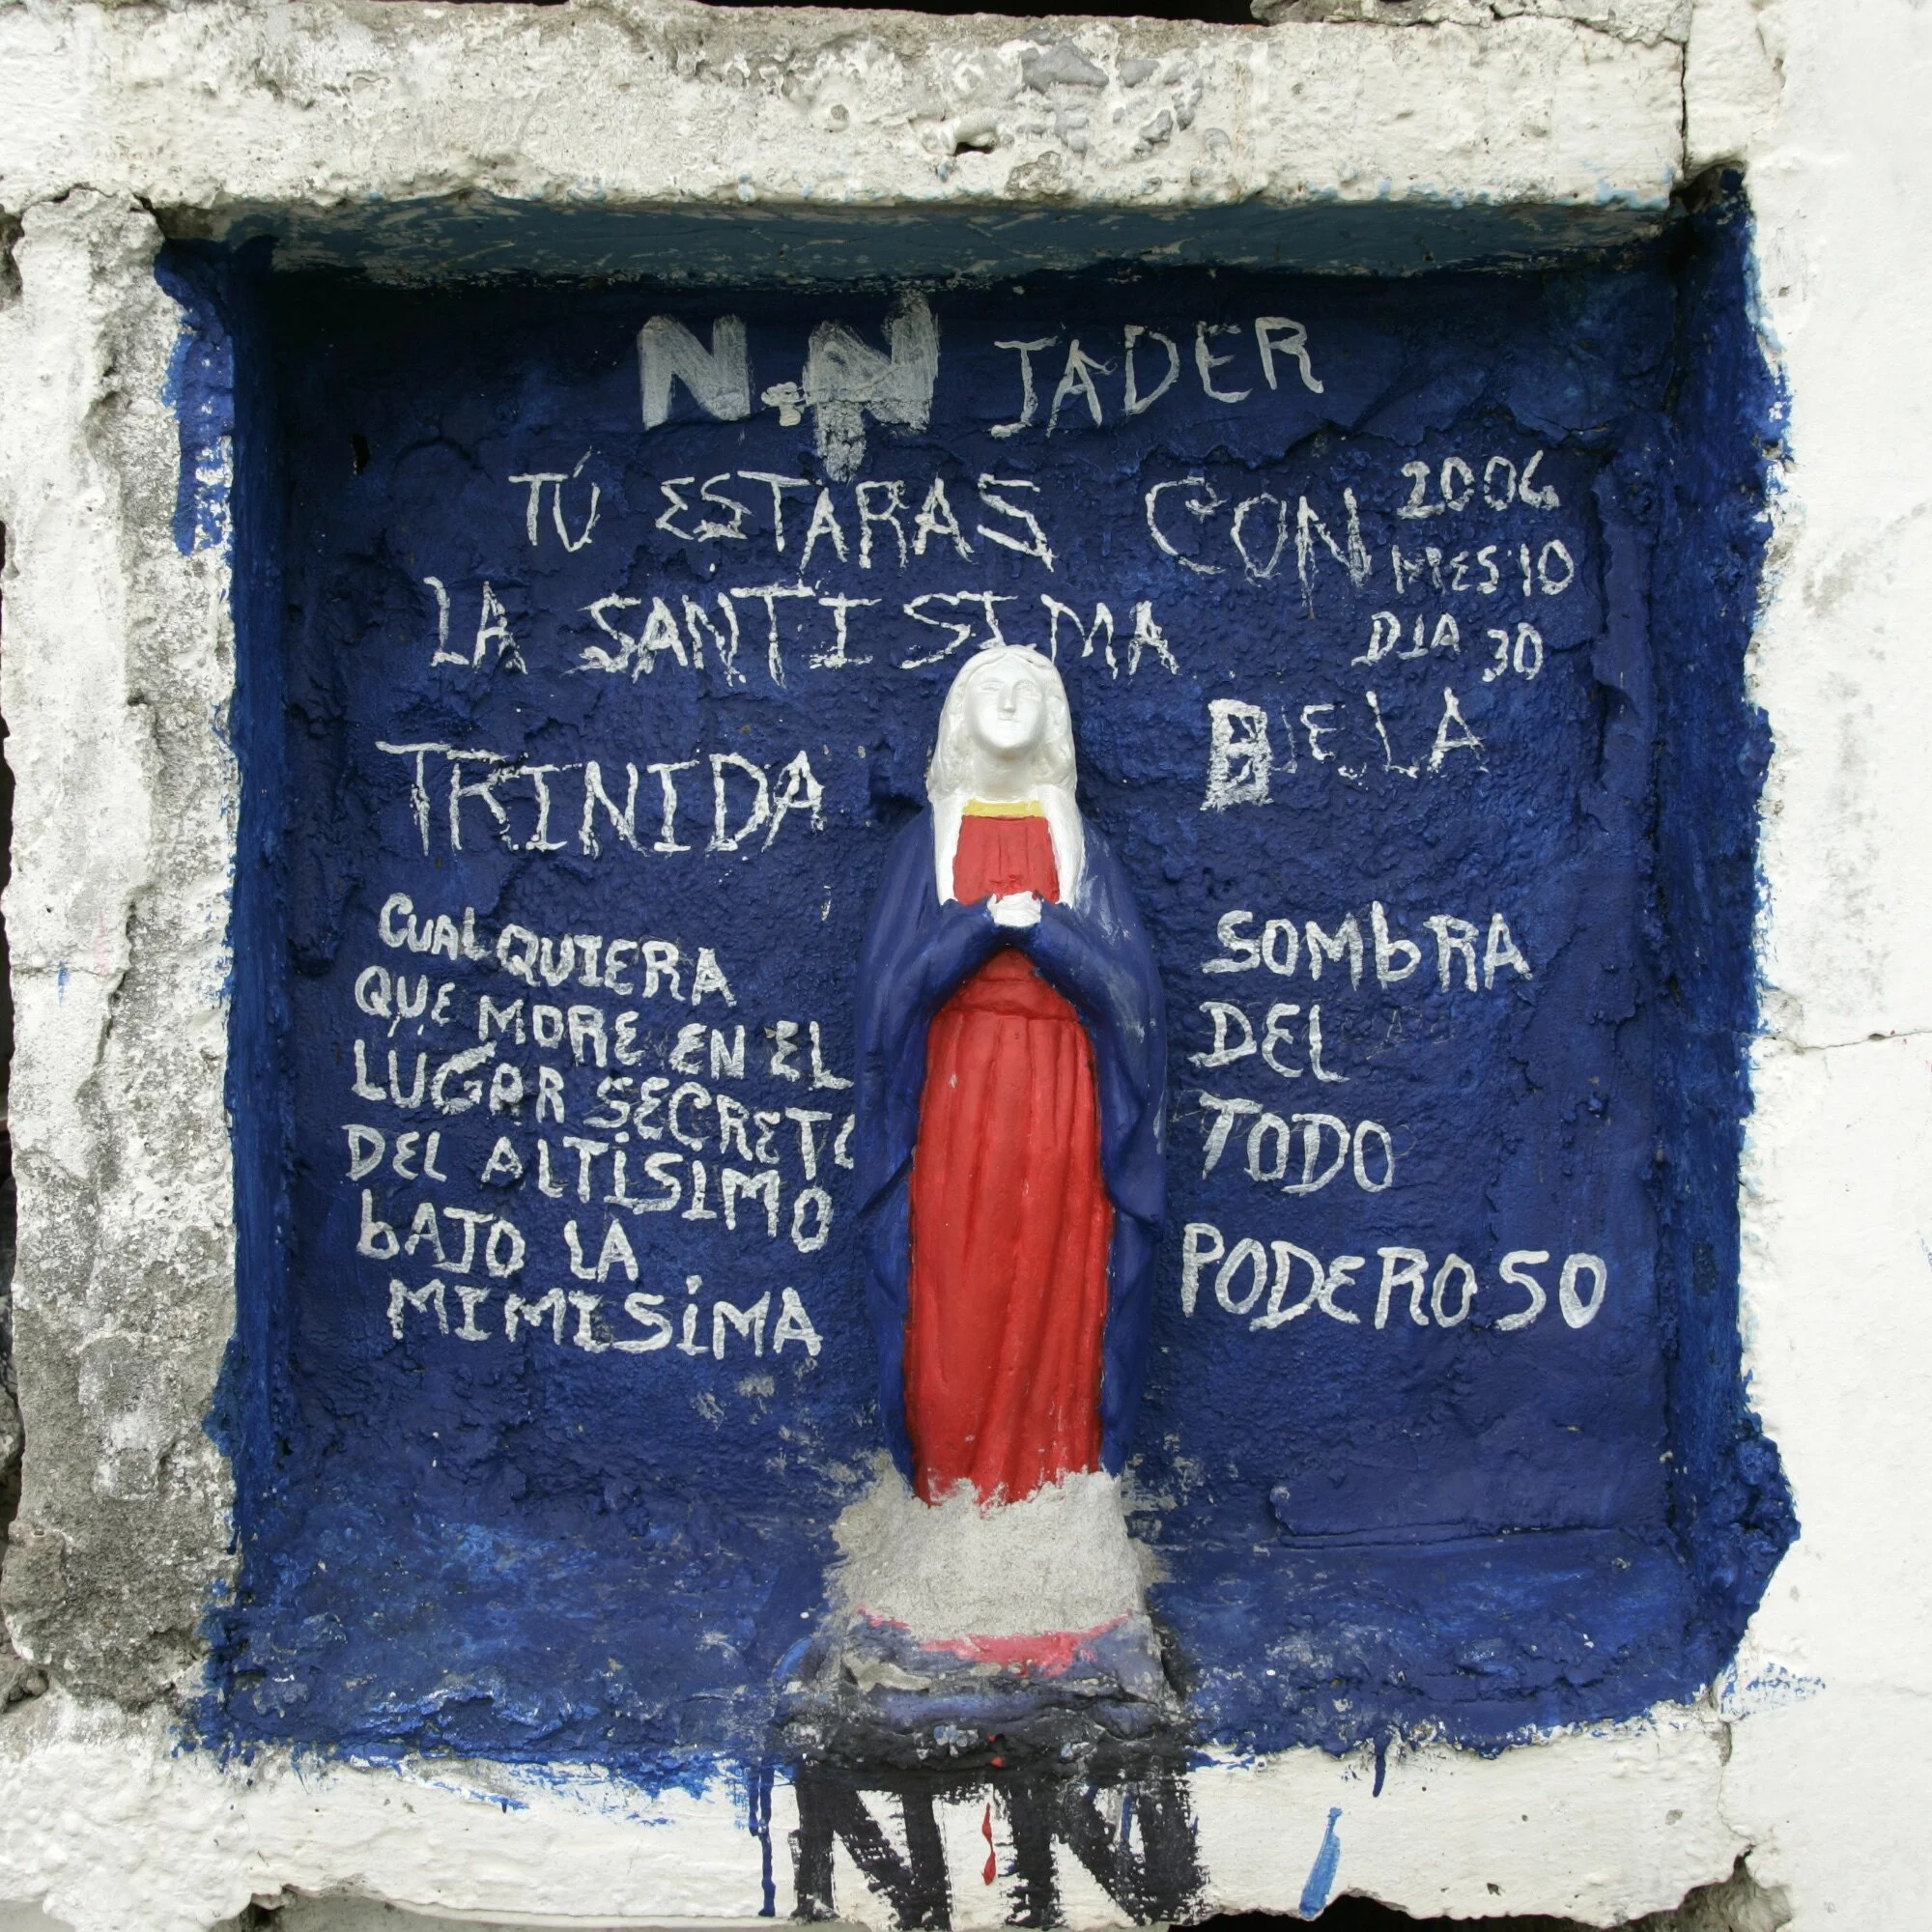 N.N JADER
TÚ ESTARAS CON
2006
MES 10
DIA 30
LA SANTISIMA
TRINIDA
CUALQUIERA
QUE MORE EN EL
LUGAR SECRETO
DEL ALTISIMO
bAJO LA
MIMISIMA
SOMbRA
DEL
TODO
PODEROSO
NN